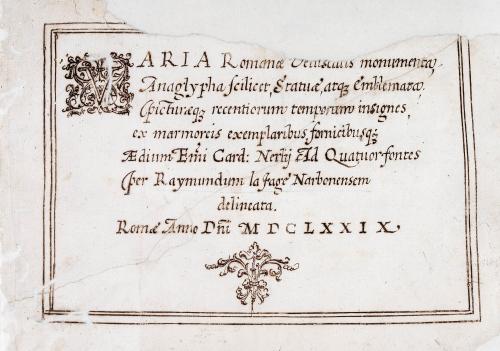 VARIA Romanæ Vetustatis monumenta,
Anaglypha scilicet, Statuæ, atq; Emblemata,
Picturæq; recentiorum temporum insignes,
ex marmoreis exemplaribus, fornicibusq;
Ædium Emi Card: Nerlij Ad Quatuor fontes
per Raymundum la fage Narbonensem
delineata.
Romæ Anno Dñi MDCLXXIX,